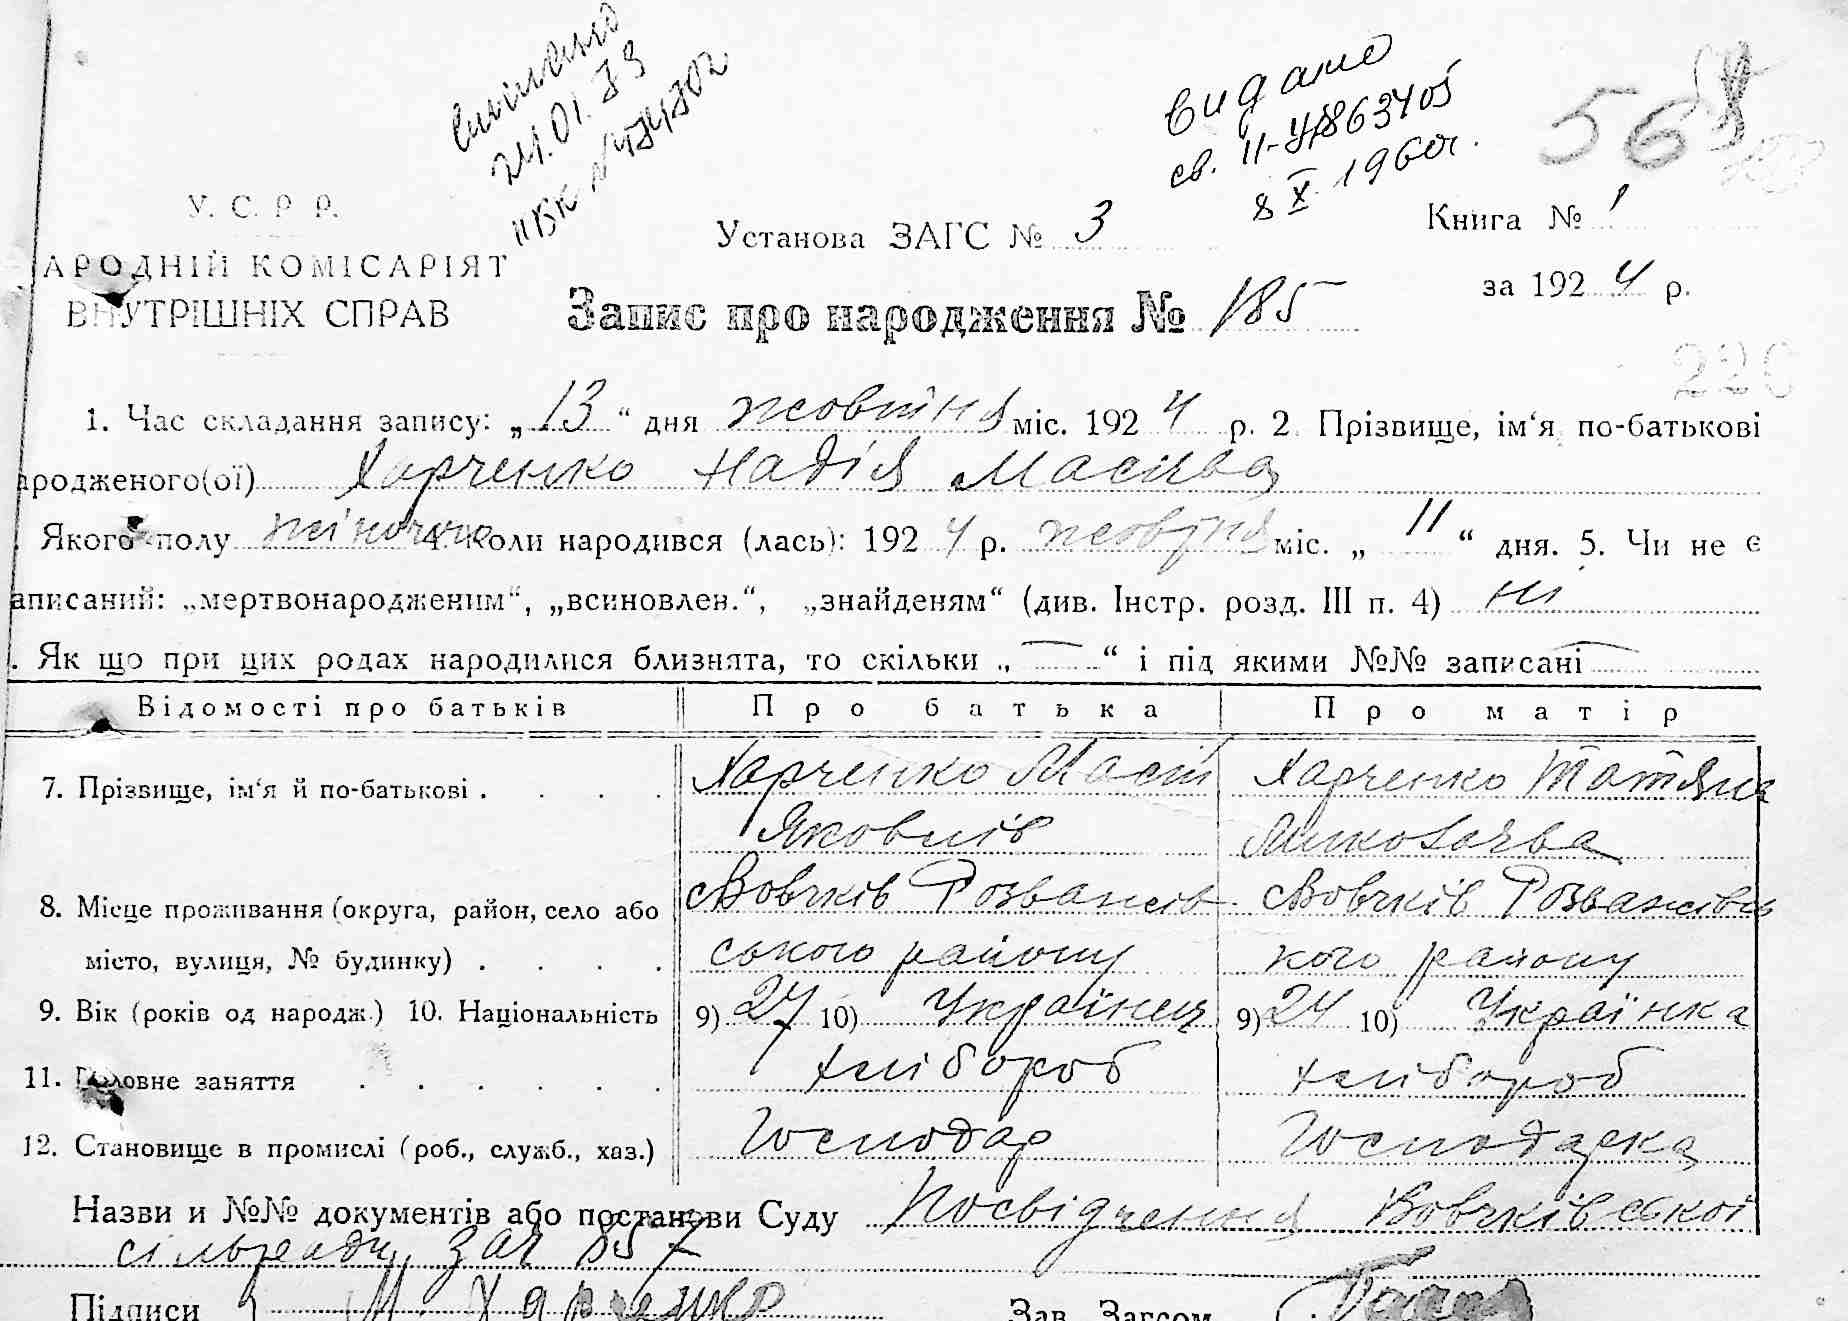 24.01.79
видано
св. II-УР863405
8 X 1960г.
568
У. С. Р Р.
АРОДНІЙ КОМІСАРІЯТ
ВНУТРІШНІХ СПРАВ
Установа ЗАГС № 3
Книга № 1
за 1924 р.
Запис про народження № 185
220
1. Час складання запису: „13“ дня жовтня міс. 1924 р. 2 Прізвище, ім‘я по-батькові
ародженого(ої) Харченко Надія Масива
Якого полу жіночого 4. Коли народився (лась): 1924 р. жовтня міс. „11“ дня. 5. Чи не є
аписаний: „мертвонародженим“, „всиновлен.“, „знайденям“ (див. Інстр. розд. III п. 4) ні
. Як що при цих родах народилися близнята, то скільки „—“ і під якими №№ записані —
Відомості про батьків
Про батька
Про матір
7. Прізвище, ім‘я й по-батькові . . . .
Харченко Масій
Яковлів
Харченко Татяна
Миколаєва
8. Місце проживання (округа, район, село або
місто, вулиця, № будинку) . . . .
Вовчків Розважів
ського району
Вовчків Розважівсь
кого району
9. Вік (років од народж.) 10. Національність
9) 27 10) Українець
9) 24 10) Українка
11. Головне заняття . . . . . .
хлібороб
хлібороб
12. Становище в промислі (роб., служб., хаз.)
Господар
Господарка
Назви и №№ документів або постанови Суду Посвідчення Вовчківської
сільради за № 857
Підписи М. Харченко
Зав. Загсом